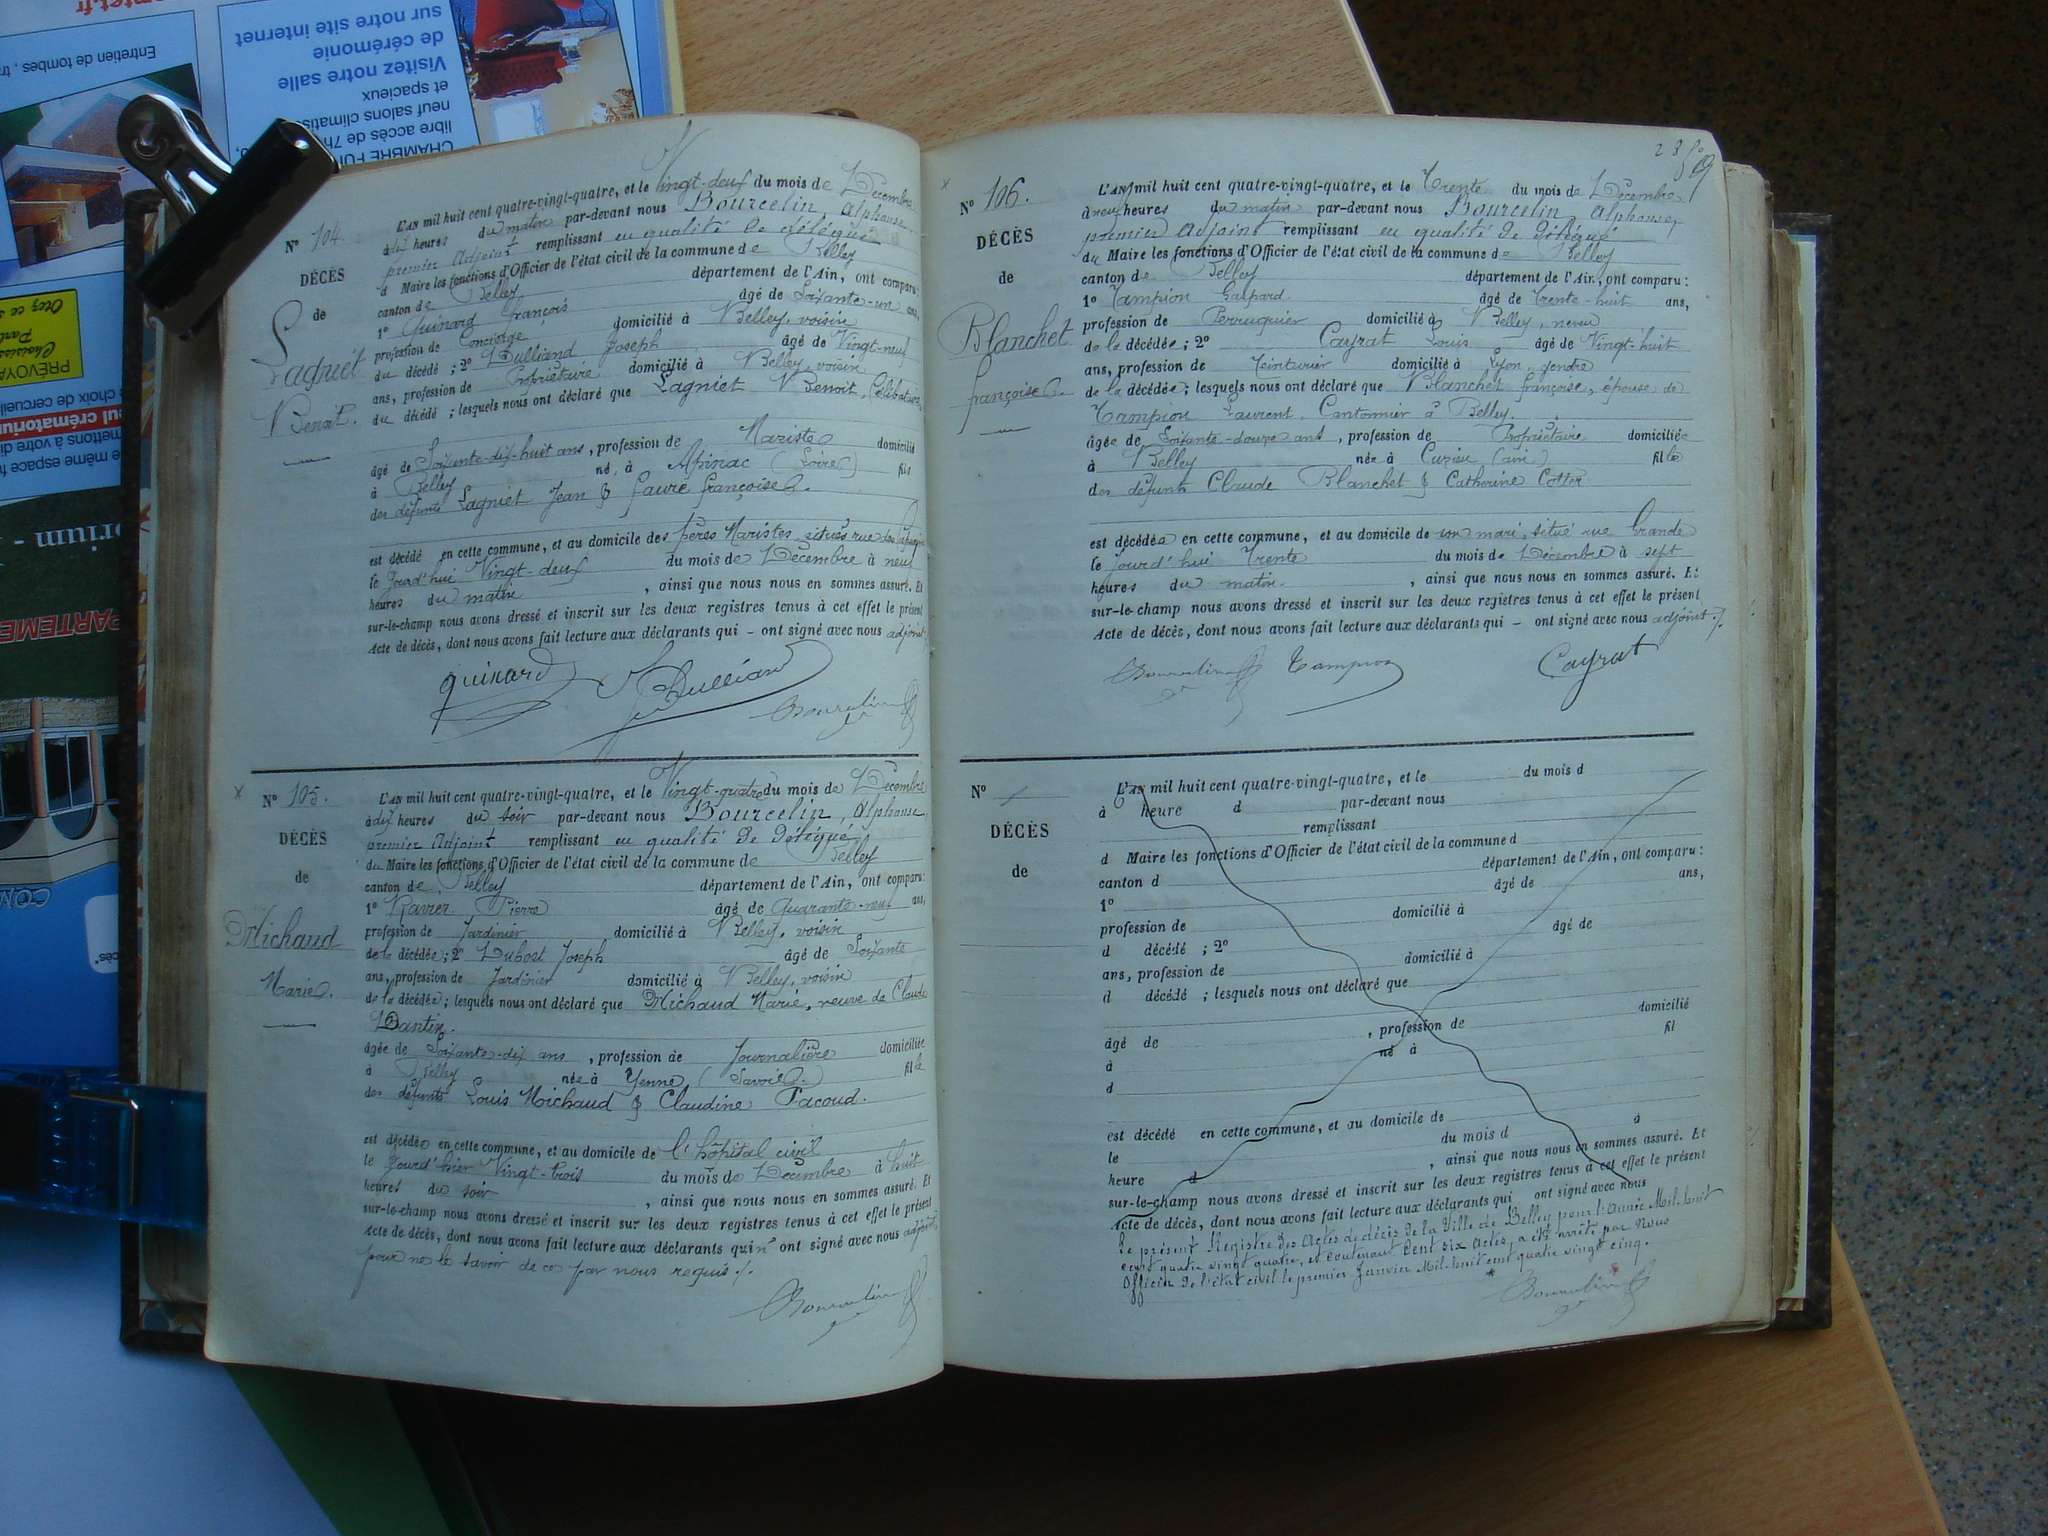 Nº 104.
DÉCÈS
de
Lagniet
Benoit.
L'AN mil huit cent quatre-vingt-quatre, et le Vingt-deux du mois de Décembre
à dix heures du matin par-devant nous Bourcelin, Alphonse
premier Adjoint remplissant en qualité de délégué
d Maire les fonctions d'Officier de l'état civil de la commune de Belley
canton de Belley département de l'Ain, ont comparu:
1º Guinard François âgé de Soixante-un ans,
profession de Concierge domicilié à Belley, voisin
du décédé ; 2º Dulliand Joseph âgé de Vingt-neuf
ans, profession de Propriétaire domicilié à Belley, voisin
du décédé ; lesquels nous ont déclaré que Lagniet Benoit, Célibataire,
âgé de Soixante-dix-huit ans, profession de Mariste domicilié
à Belley né, à Apinac (Loire) fils
des défunts Lagniet Jean & Faure Françoise.
est décédé en cette commune, et au domicile des pères Maristes, situés rue des
le jourd'hui Vingt-deux du mois de Décembre à neuf
heures du matin, ainsi que nous nous en sommes assuré. Et
sur-le-champ nous avons dressé et inscrit sur les deux registres tenus à cet effet le présent
Acte de décès, dont nous avons fait lecture aux déclarants qui - ont signé avec nous adjoint ;
Guinard J Dulliand
Bourcelin
x Nº 105.
DÉCÈS
de
Michaud
Marie.
L'AN mil huit cent quatre-vingt-quatre, et le Vingt-quatre du mois de Décembre
à dix heures du soir par-devant nous Bourcelin, Alphonse,
premier Adjoint remplissant en qualité de délégué
du Maire les fonctions d'Officier de l'état civil de la commune de Belley
canton de Belley département de l'Ain, ont comparu:
1º Ravier Pierre âgé de Quarante-neuf ans,
profession de Jardinier domicilié à Belley, voisin
de la décédée ; 2º Dubost Joseph âgé de Soixante
ans, profession de Jardinier domicilié à Belley, voisin
de la décédée ; lesquels nous ont déclaré que Michaud Marie, veuve de Claude
Dantin.
âgée de Soixante-dix ans, profession de Journalière domiciliée
à Belley née à Yenne (Savoie.) fille
des défunts Louis Michaud & Claudine Pacoud.
est décédée en cette commune, et au domicile de l'hôpital civil
le jourd'hier Vingt-trois du mois de Décembre à huit
heures du soir, ainsi que nous nous en sommes assuré. Et
sur-le-champ nous avons dressé et inscrit sur les deux registres tenus à cet effet le présent
Acte de décès, dont nous avons fait lecture aux déclarants qui n' ont signé avec nous adjoint
pour ne le savoir de ce par nous requis ./.
Bourcelin
x Nº 106.
DÉCÈS
de
Blanchet
françoise.
L'AN mil huit cent quatre-vingt-quatre, et le Trente du mois de Décembre
à neuf heures du matin par-devant nous Bourcelin, Alphonse,
premier Adjoint remplissant en qualité de délégué
du Maire les fonctions d'Officier de l'état civil de la commune de Belley
canton de Belley département de l'Ain, ont comparu:
1º Tampion Gaspard âgé de trente-huit ans,
profession de Perruquier domicilié à Belley, neveu
de la décédée ; 2º Cayrat Louis âgé de Vingt-huit
ans, profession de Teinturier domicilié à Lyon, gendre
de la décédée ; lesquels nous ont déclaré que Blanchet françoise, épouse de
Tampion Laurent, Cantonnier à Belley.
âgée de Soixante-douze ans, profession de Propriétaire domiciliée
à Belley née à Cuzieu (ain.) fille
des défunts Claude Blanchet & Catherine Cotter
est décédée en cette commune, et au domicile de son mari, situé rue Grande
le jourd'hui Trente du mois de Décembre à sept
heures du matin, ainsi que nous nous en sommes assuré. Et
sur-le-champ nous avons dressé et inscrit sur les deux registres tenus à cet effet le présent
Acte de décès, dont nous avons fait lecture aux déclarants qui - ont signé avec nous adjoint ./.
Bourcelin Tampion Cayrat
Nº
DÉCÈS
de
L'AN mil huit cent quatre-vingt-quatre, et le du mois d
à heure d par-devant nous
remplissant
d Maire les fonctions d'Officier de l'état civil de la commune d
canton d département de l'Ain, ont comparu:
1º âgé de ans,
profession de domicilié à
d décédé ; 2º âgé de
ans, profession de domicilié à
d décédé ; lesquels nous ont déclaré que
âgé de , profession de domicilié
à né à fil
d
est décédé en cette commune, et au domicile de
le du mois d à
heure d , ainsi que nous nous en sommes assuré. Et
sur-le-champ nous avons dressé et inscrit sur les deux registres tenus à cet effet le présent
Acte de décès, dont nous avons fait lecture aux déclarants qui ont signé avec nous
Le présent Registre des Actes de décès de la Ville de Belley pour l'Année Mil-huit
cent quatre vingt quatre, et contenant Cent six Actes, a été arrêté par Nous
Officier de l'état civil le premier Janvier Mil-huit cent quatre vingt cinq.
Bourcelin
Entretien de tombes, tr
Visitez notre salle
de cérémonie
sur notre site internet
CHAMBRE FU
libre accès de 7h
neuf salons climatis
et spacieux
PRÉVOYA
Choisis